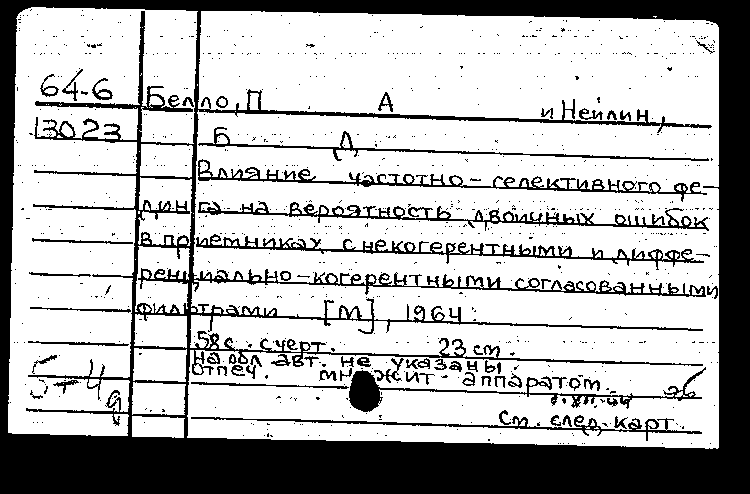 64-6 Белло, П А и Нейлин,
13023 Б Д
Влияние частотно-селективного фе-
динга на вероятность двоичных ошибок
в приемниках с некогерентными и диффе-
ренциально-когерентными согласованными
фильтрами [М], 1964.
58с. с черт. 23 см.
На обл авт. не указаны.
Отпеч. множит. аппаратом.
5-4
См. след. карт.